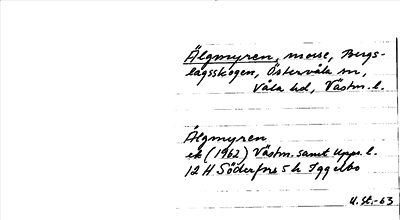 Älgmyren, mosse, Bergs-
lagsskogen, Östervåla sn,
Våla hd, Västm. l.
Älgmyren
ek (1962) Västm. samt Upps. l.
12 H Söderfors 5 h Iggelbo
U. St.-63